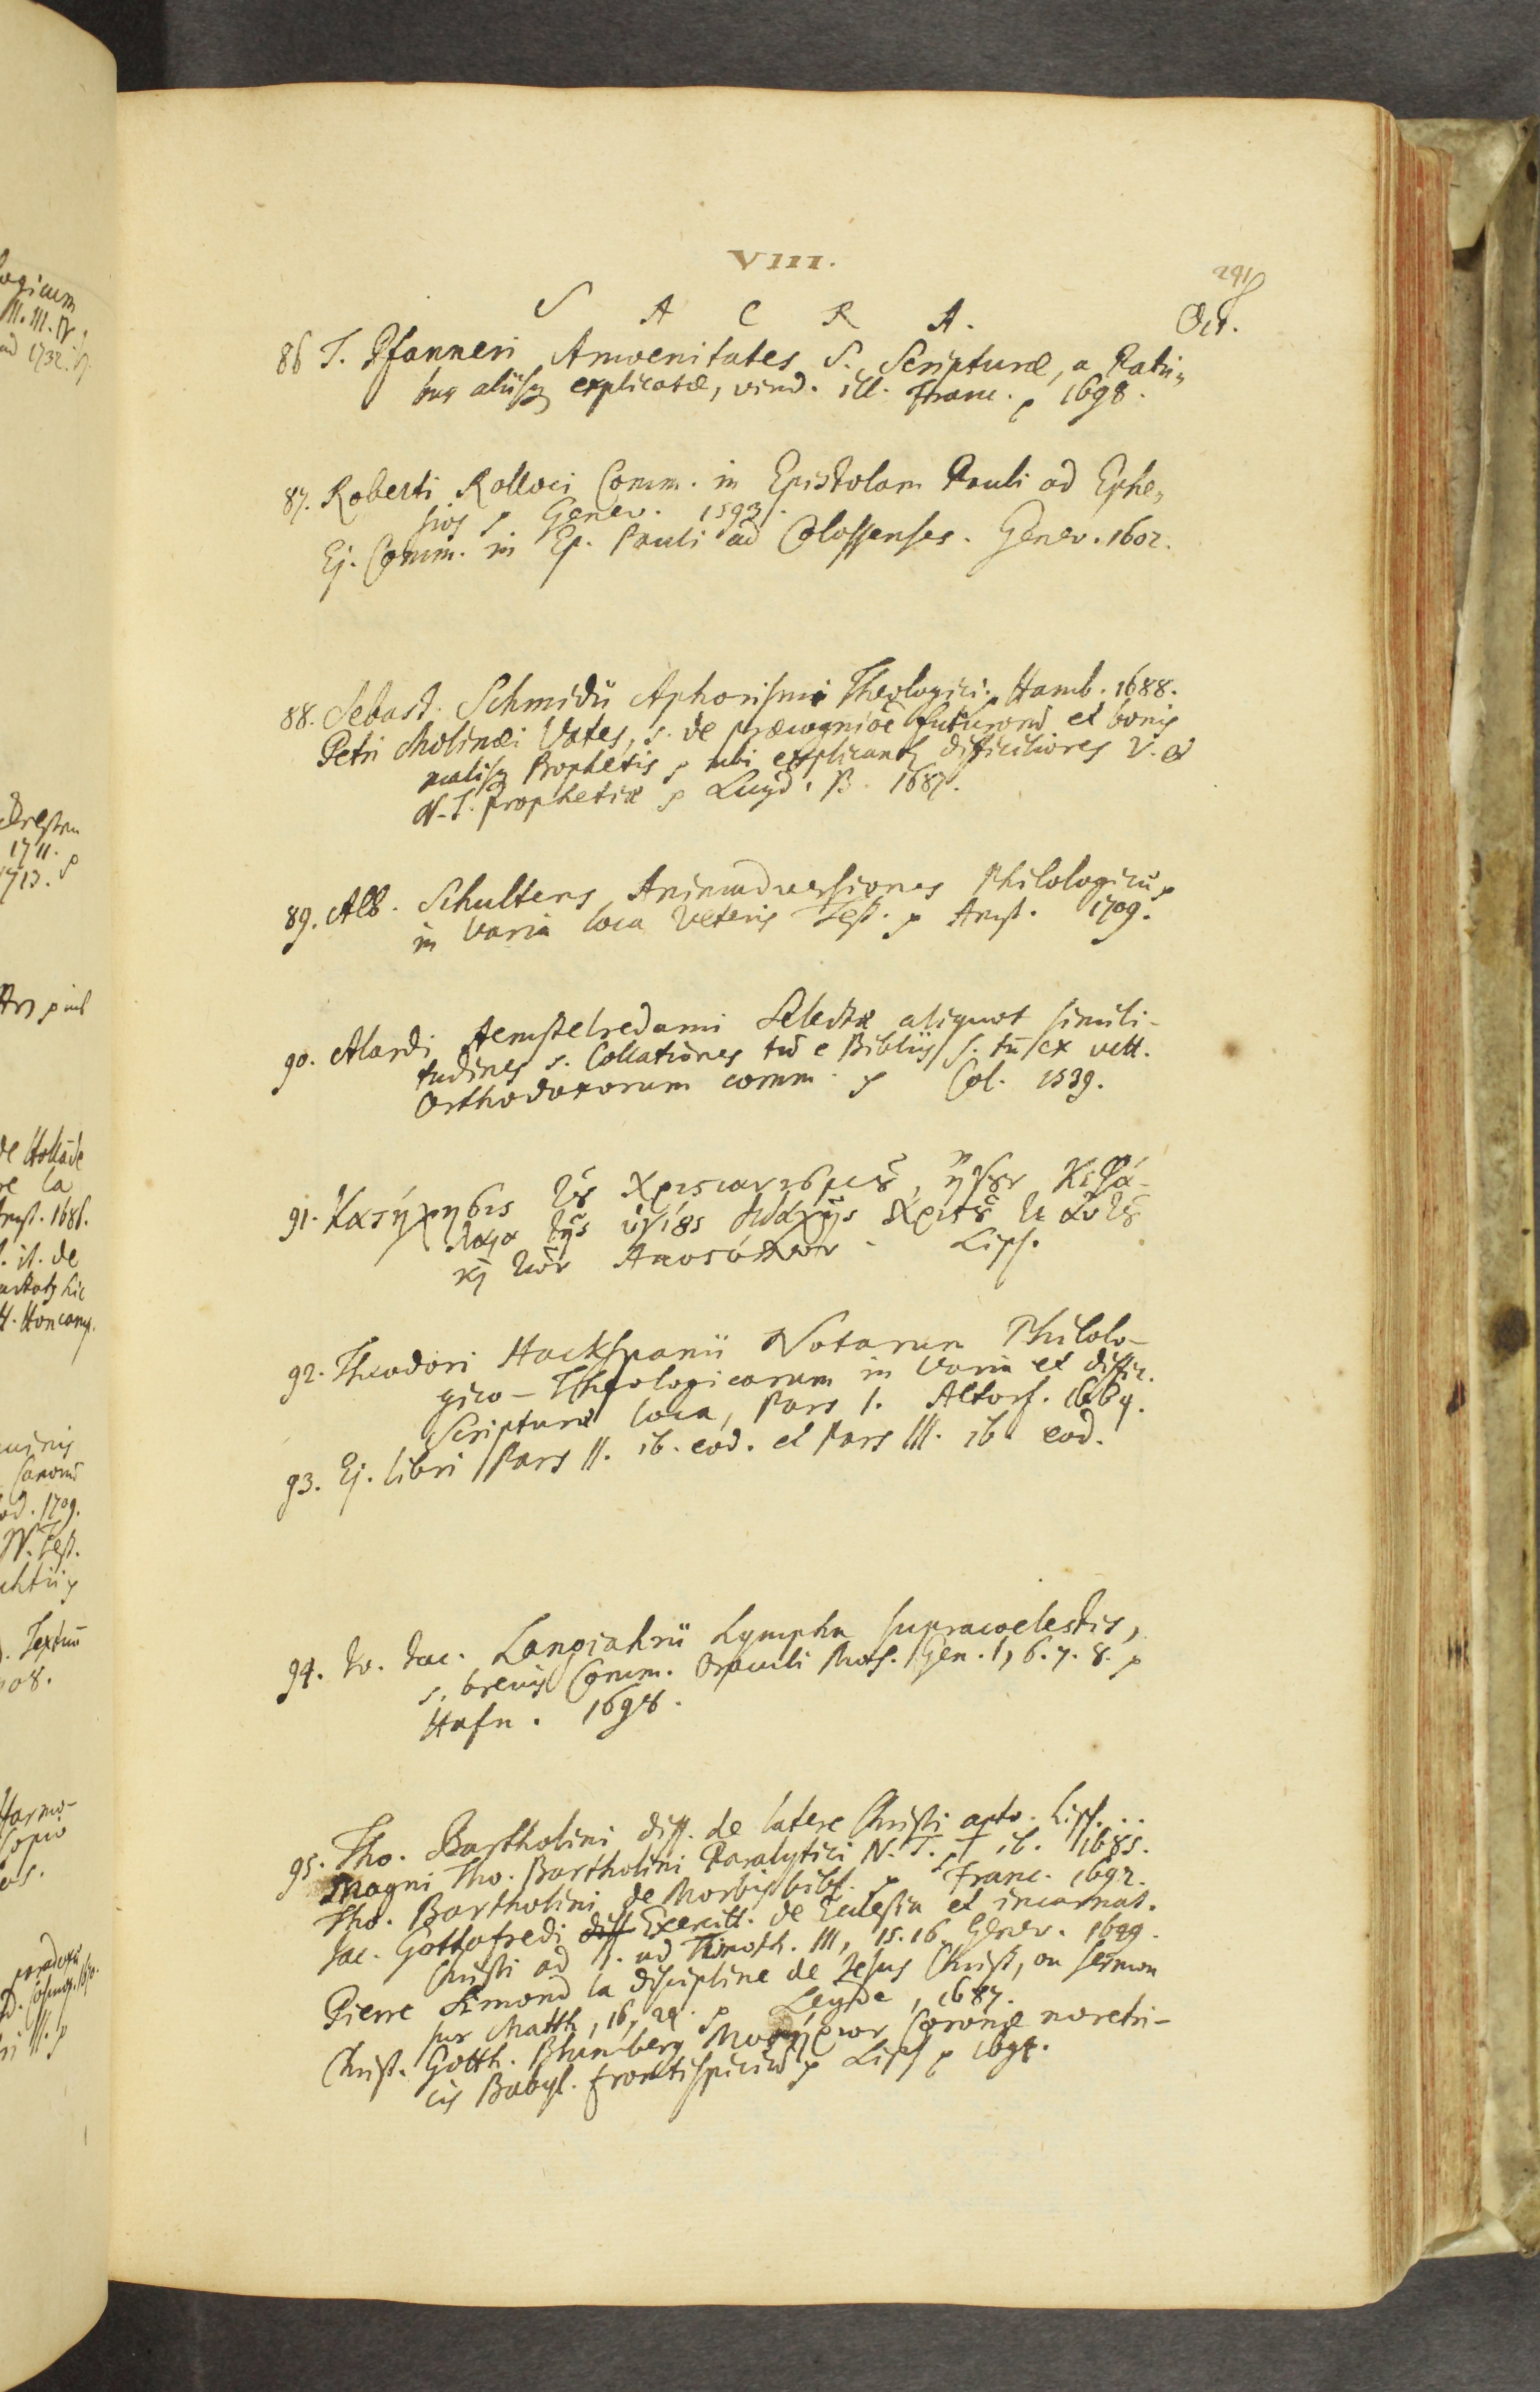 VIII.
291
S A C R A. Oct.
86 T. Pfanneri Amoenitates S. Scripturæ, a Patri„
bus aliisq explicatæ, vind. ill. Franc. p 1698.
87. Roberti Rolloci Comm. in Epistolam Pauli ad Ephe„
sios p Genev. 1593.
Ej. Comm. in Ep. Pauli ad Colossenses. Genev. 1602.
88. Sebast. Schmidii Aphorismi Theologici. Hamb. 1688.
Petri Molinæi Vates, s. de præcogniõe futurorũ et bonis
malisq Prophetis p ubi explicantr difficiliores V. &
N. T. prophetiæ p Lugd. B. 1687.
89. Alb. Schultens Animadversiones Philologicæ p
in varia loca Veteris Test. p Amst. 1709.
90. Alardi Aemstelredami Selectæ aliquot simili-
tudines s. Collationes tũ e Bibliis s. tũ ex vett.
Orthodoxorum comm. p Col. 1539.
91. Κατήχησις τȣ χριςιανισμȣ, ἤγȣν Κεφά-
λαια τῆς ὑγιȣς διδαχῆς Χριςȣ τε αὐτȣ
κ τῶν Αποςόλων - Lips.
92. Theodori Hackspanii Notarum Philolo-
gico - Theologicarum in Varia et diffic.
Scripturæ loca, Pars I. Altorf. 1664.
93. Ej. libri Pars II. ib. eod. et Pars III. ib. eod.
94. Jo. Jac. Langjahrii Lympha supracoelestis,
s. brevis Comm. Oraculi Mos. Gen. 1, 6. 7. 8. p
Hafn. 1698.
95. Tho. Bartholini diss. de latere Christi apto. Lips. ..
Magni Tho. Bartholini Paralytici N. T. p ib. 1685.
Tho. Bartholini de Morbis bibl. p Franc. 1692.
Jac. Gottofredi diss Exercitt. de Ecclesia et incarnat.
Christi ad I. ad Timoth. III, 15. 16. Genev. 1649.
Pierre Simond la discipline de Jesus Christ, ou sermon
sur Matth, 16, 24. p Leyde, 1687.
Christ. Gotth. Blumberg Coronæ meretri-
cis Babyl. frontispiciũ p Lips p 1694.